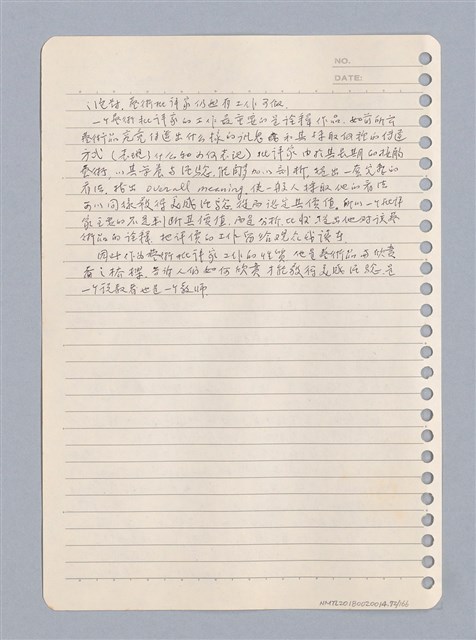 NO.
DATE:
沒錯,藝術批評家仍然有工作可做。
一个藝術批評家的工作最重要的是詮釋作品,如前所言
藝術品究竟傳達出什么樣的訊息和其採取何種的傳達
方式(表現了什么和如何表現)批評家由於其長期的接觸
藝術,以其學養与經驗,能夠加以剖析,提出一套完整的
看法,指出 overall meaning,使一般人採取他的看法
可以同樣獲得美感經驗從而認定其價值,所以一个批評
家主要的不是判斷其價值,而是分析比較,提出他對該藝
術品的詮釋,把評價的工作留給觀众或讀者
因此作為藝術批評家工作的性質,他是藝術品与欣賞
者之橋樑,告訴人們如何欣賞才能獲得美感經驗,是
一个說教者也是一个教師
NMTL20180020014.73/166